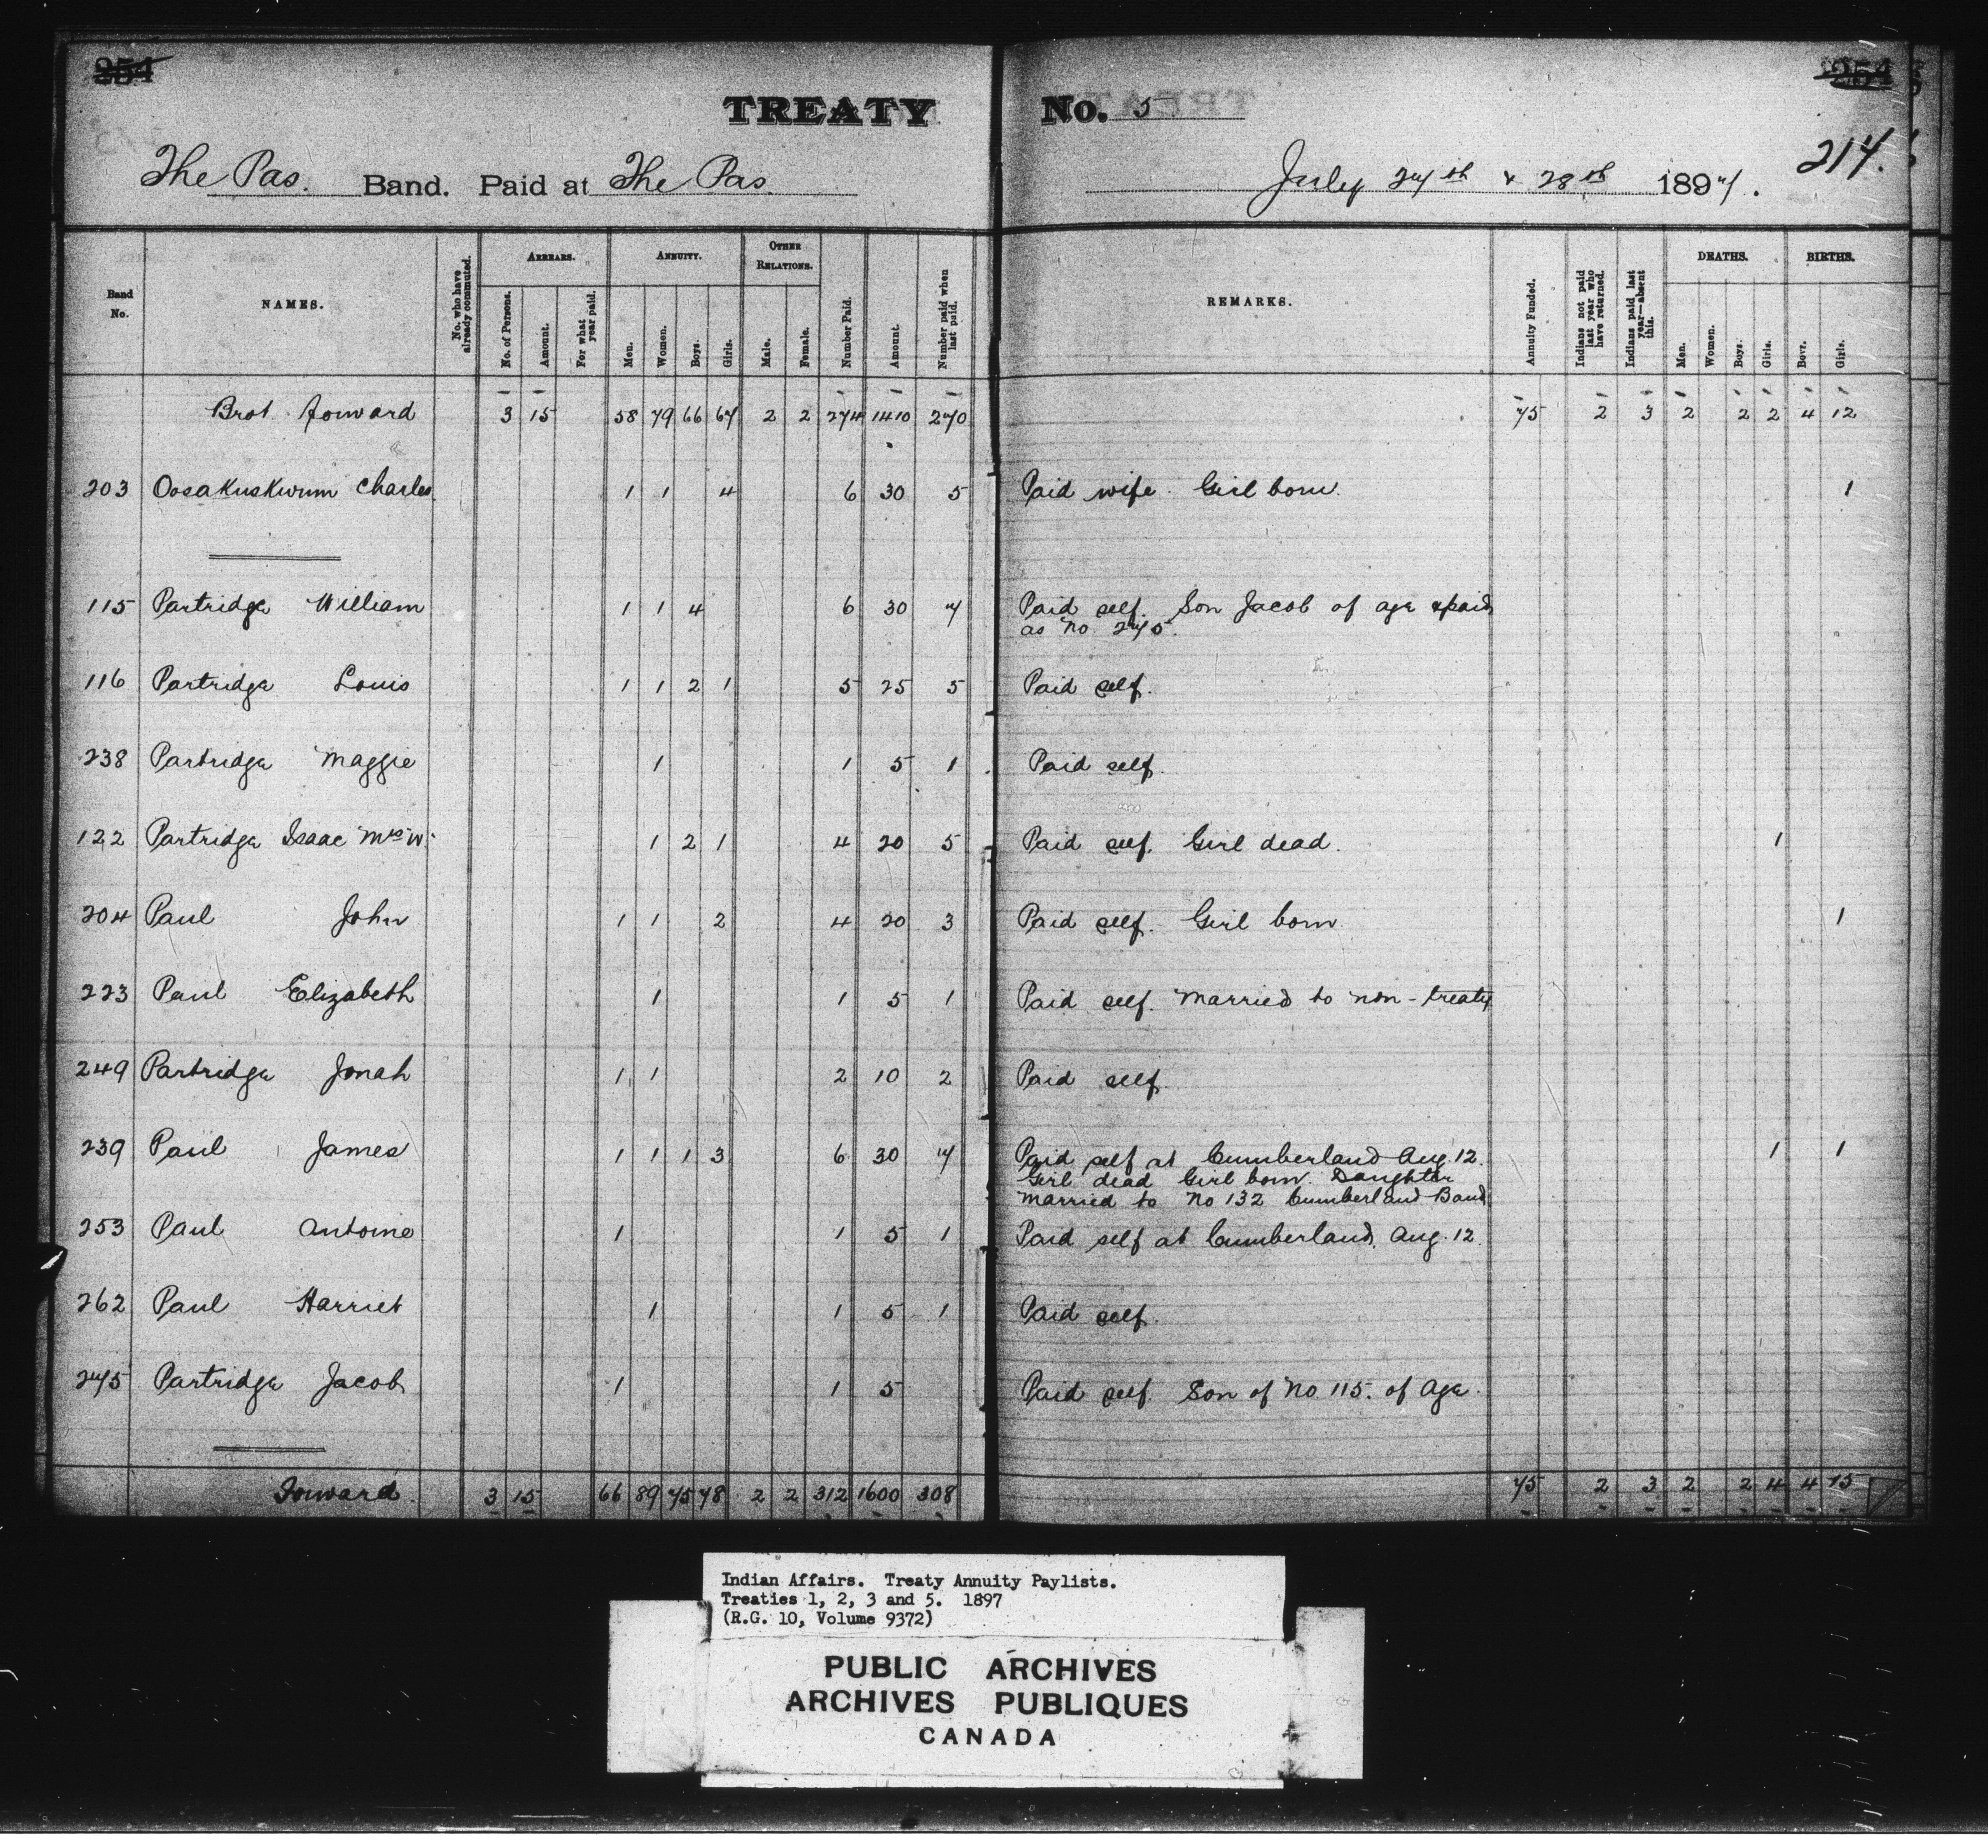 254
254
TREATY No. 5
214.
The Pas. Band. Paid at The Pas. July 27th & 28th 1897.
Band No. NAMES. No. who have already commuted. ARREARS. No. of Persons. Amount. For what year paid. ANNUITY. Men. Women. Boys. Girls. OTHER RELATIONS. Male. Female. Number Paid. Amount. Number paid when last paid. REMARKS. Annuity Funded. Indians not paid last year who have returned. Indians paid last year—absent this. DEATHS. Men. Women. Boys. Girls. BIRTHS. Boys. Girls.
Brot forward 3 15 58 79 66 67 2 2 274 1410 270 75 2 3 2 2 2 4 12
203 Oosakuskwum Charles 1 1 4 6 30 5 Paid wife. Girl born. 1
115 Partridge William 1 1 4 6 30 7 Paid self. Son Jacob of age & paid
as No 275.
116 Partridge Louis 1 1 2 1 5 25 5 Paid self.
238 Partridge Maggie 1 1 5 1 Paid self.
122 Partridge Isaac Mrs W. 1 2 1 4 20 5 Paid self. Girl dead. 1
204 Paul John 1 1 2 4 20 3 Paid self. Girl born. 1
223 Paul Elizabeth 1 1 5 1 Paid self. Married to non-treaty
249 Partridge Jonah 1 1 2 10 2 Paid self.
239 Paul James 1 1 1 3 6 30 7 Paid self at Cumberland Aug. 12. 1 1
Girl dead Girl born. Daughter
married to No 132 Cumberland Band
253 Paul Antoine 1 1 5 1 Paid self at Cumberland, Aug. 12.
262 Paul Harriet 1 1 5 1 Paid self.
275 Partridge Jacob 1 1 5 Paid self. Son of No 115. of age.
Forward. 3 15 66 89 75 78 2 2 312 1600 308 75 2 3 2 2 4 4 15
Indian Affairs. Treaty Annuity Paylists.
Treaties 1, 2, 3 and 5. 1897
(R.G. 10, Volume 9372)
PUBLIC ARCHIVES
ARCHIVES PUBLIQUES
CANADA